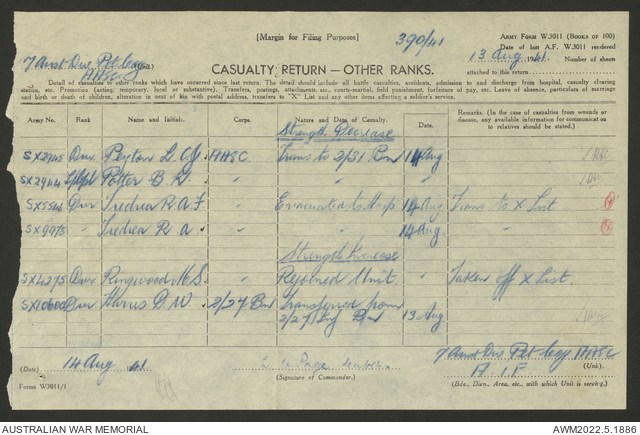 [Margin for Filing Purposes]
390/41
ARMY FORM W.3011 (BOOKS OF 100)
Date of last A.F. W.3011 rendered
7 Aust Div Pet Coy
AASC
(Unit.)
13 Aug 1941.
Number of sheets
CASUALTY RETURN — OTHER RANKS.
attached to this return
Detail of casualties to other ranks which have occurred since last return. The detail should include all battle casualties, accidents, admission to and discharge from hospital, casualty clearing
station, etc. Promotion (acting, temporary, local or substantive). Transfers, postings, attachments, etc., courts-martial, field punishment, forfeiture of pay, etc. Leave of absence, particulars of marriage
and birth or death of children, alteration in next of kin with postal address, transfers to "X" List and any other items affecting a soldier's service.
Army No. Rank Name and Initials. Corps. Nature and Date of Casualty. Date. Remarks. (In the case of casualties from wounds or disease, any available information for communication to relatives should be stated.)
Strength Decrease
Dvr Peyton L. AASC Trans to 2/31 Bn 11 Aug
SX2944 Potter B " " "
SX5546 Dvr Tredrea R A F. " Evacuated to Hosp 14 Aug Trans to X List
SX9975 " Tredrea R a. " 14 Aug "
Strength Increase
SX4275 Dvr Ringwood M. S. " Rejoined Unit. " Taken off X List.
SX10600 Dvr Harris D. W. 2/27 Bn Transferred from
2/27 Inf Bn 13 Aug
(Date) 14 Aug 41
(Signature of Commander.)
7 Aust Div Pet Coy AASC
(Unit).
A.I.F
(Bde., Divn., Area, etc., with which Unit is serving.)
Forms W3011/1
AUSTRALIAN WAR MEMORIAL
AWM2022.5.1886